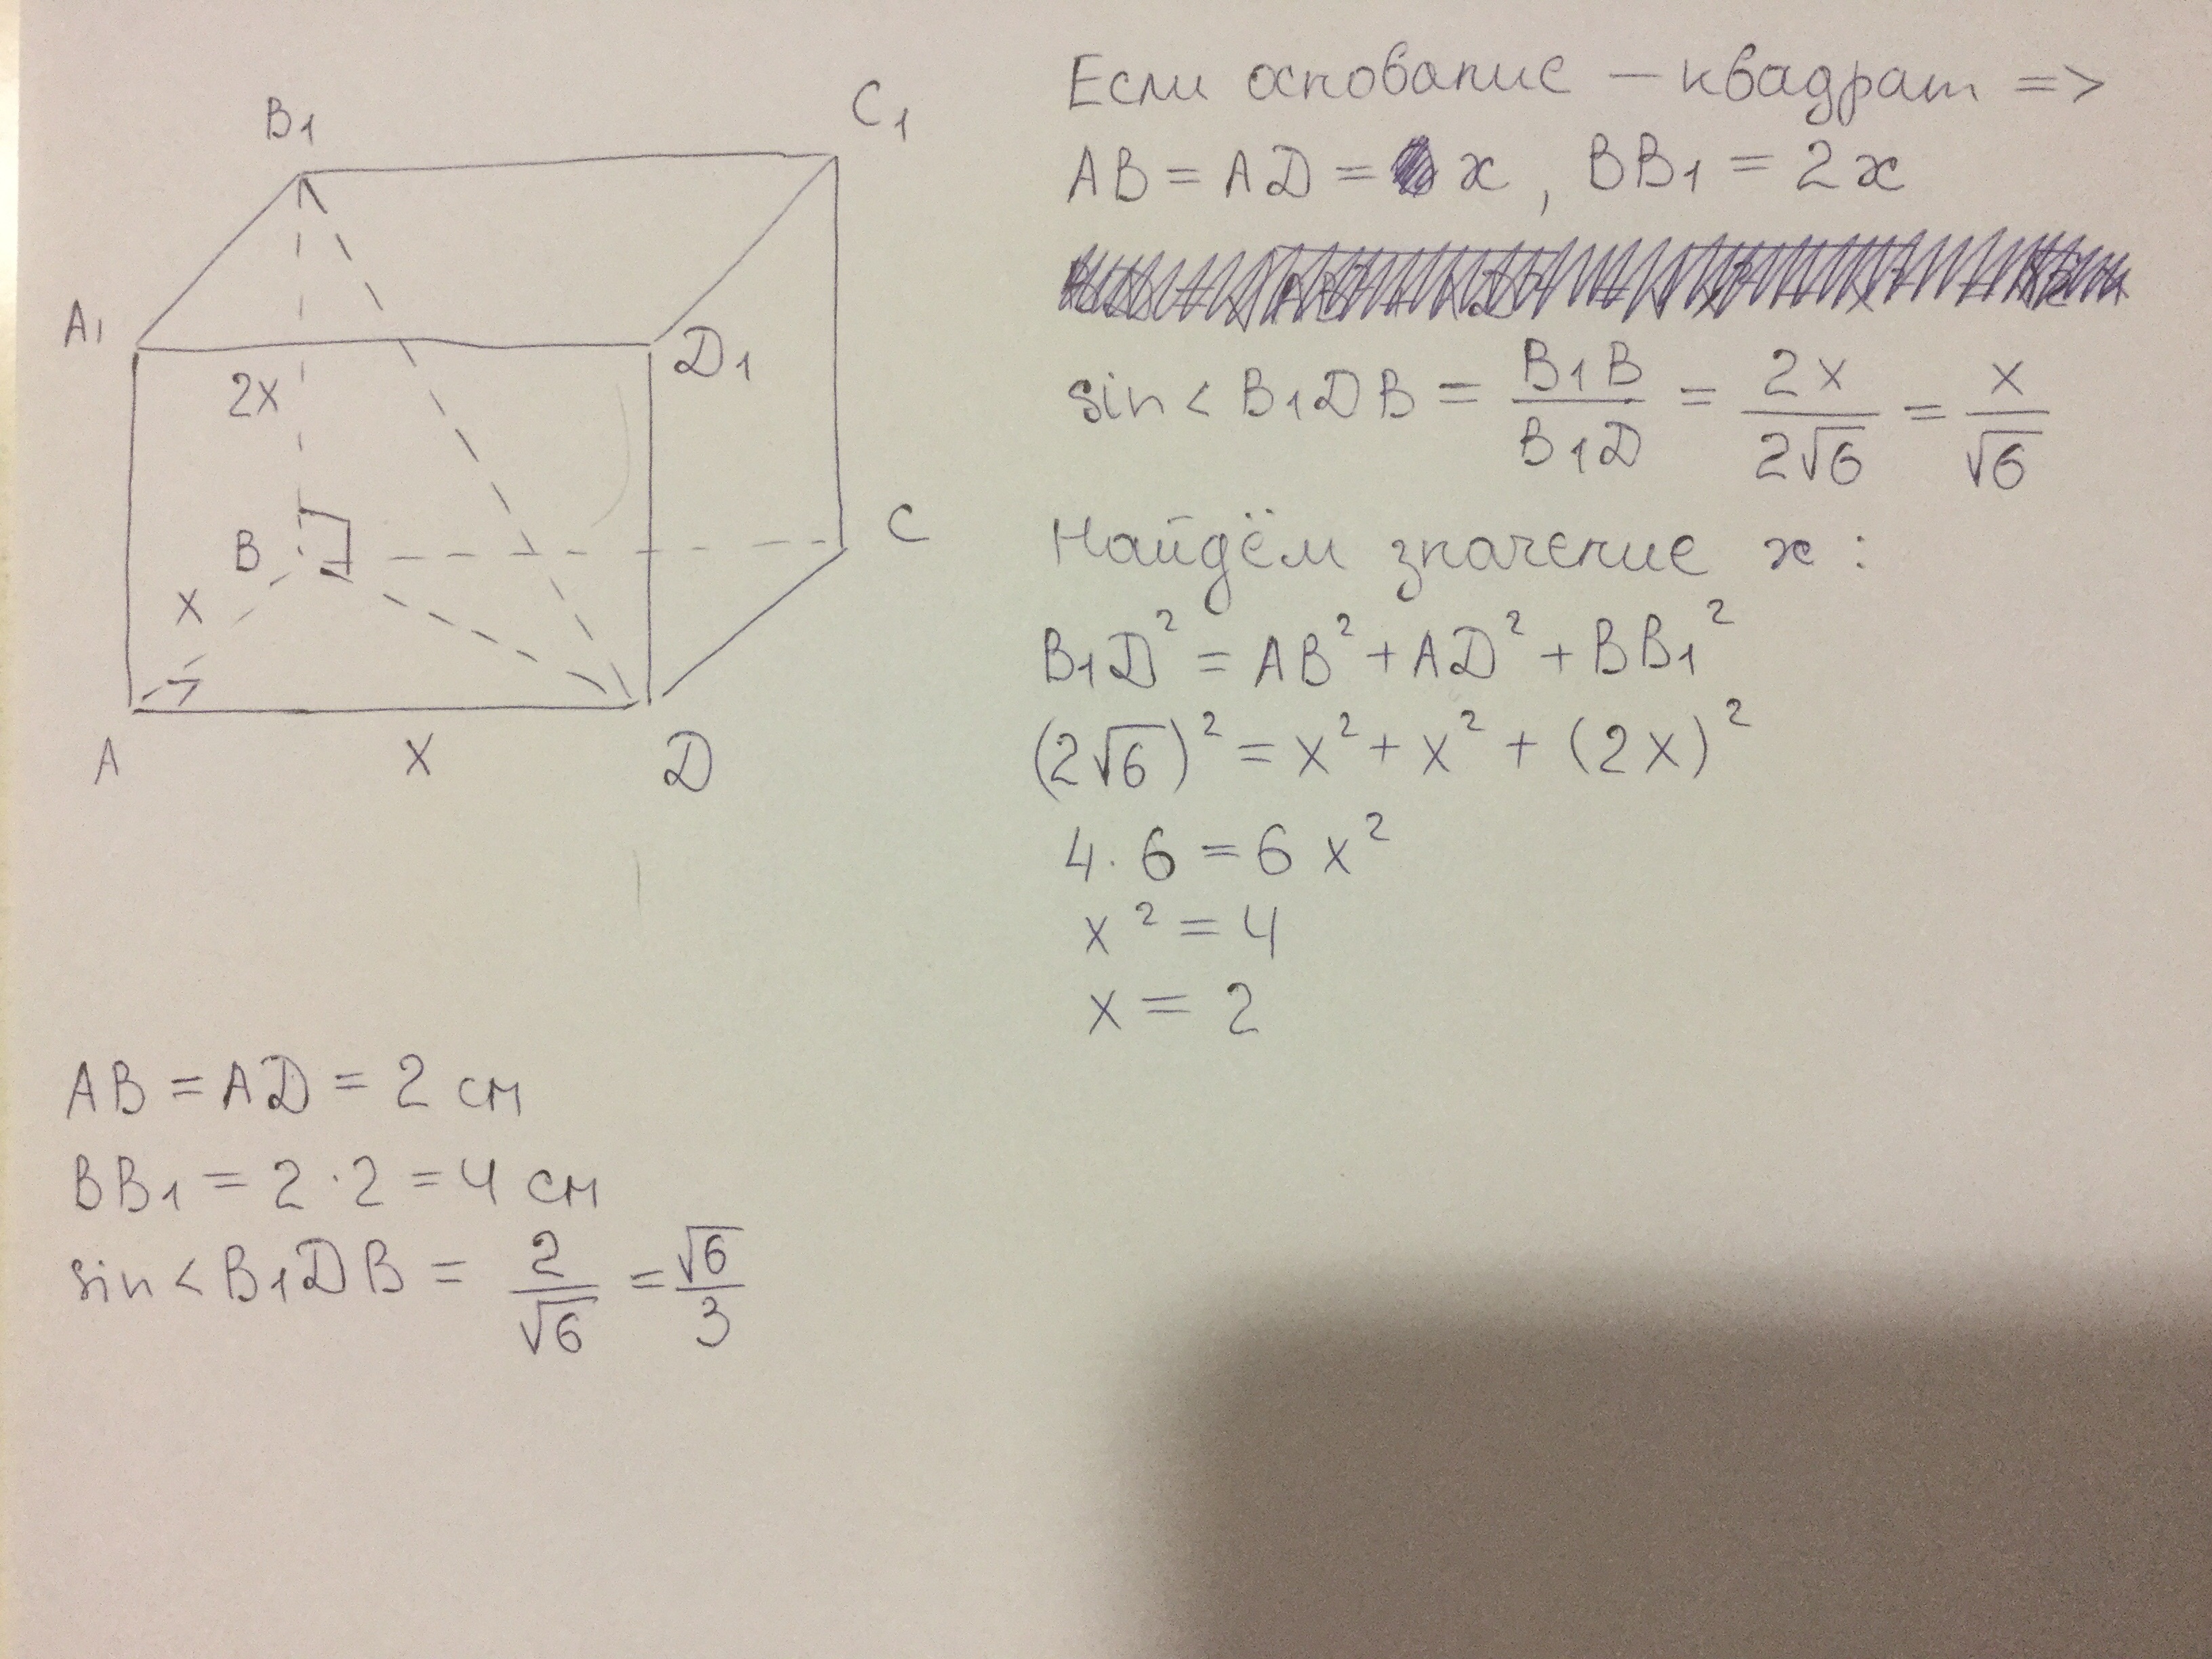 B₁
C₁
A₁
D₁
2x
B
C
x
A
x
D
Если основание – квадрат =>
AB = AD = x, BB₁ = 2x
sin < B₁DB = B₁B/B₁D = 2x/2√6 = x/√6
Найдём значение x:
B₁D² = AB² + AD² + BB₁²
(2√6)² = x² + x² + (2x)²
4·6 = 6x²
x² = 4
x = 2
AB = AD = 2 см
BB₁ = 2·2 = 4 см
sin < B₁DB = 2/√6 = √6/3